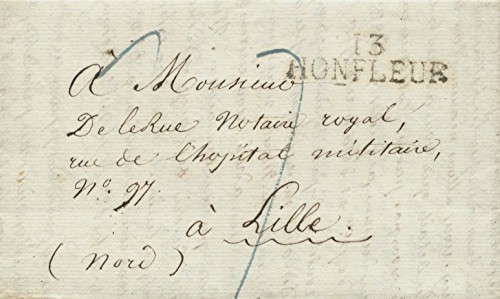 13
HONFLEUR
à Monsieur
DeleRue Notaire royal,
rue de l'hopital militaire,
N°. 97.
à Lille.
(Nord)